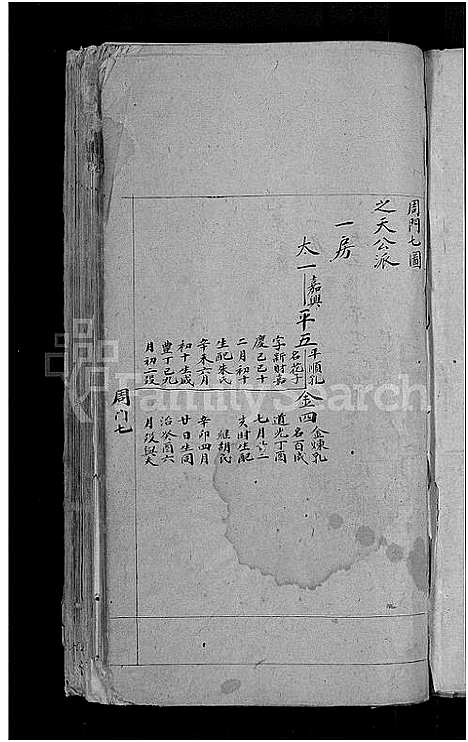 周門七圖
之天公派
一房
太一
嘉興
平五
平順乳
名花子
字新財嘉
慶己巳十
二月初十
生配朱氏
辛未六月
初十生咸
豐丁巳九
月初二歿
金四
金煉乳
名百成
道光丁酉
七月廿二
亥时生配
維胡氏
辛卯四月
廿日生同
治癸酉六
月歿與夫
周門七
FamilySearch